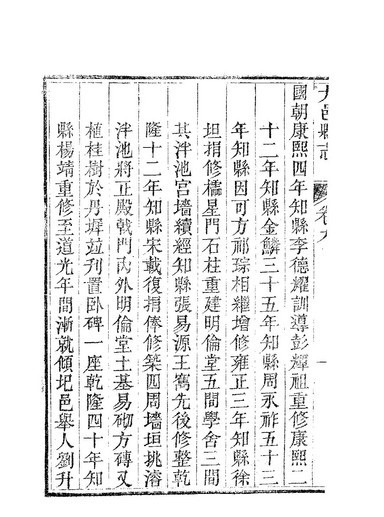 大邑縣志 卷九 一
國朝康熙四年知縣李德耀訓導彭耀祖重修康熙二
十二年知縣金鱗三十五年知縣周永祚五十三
年知縣因可方祁琮相繼增修雍正三年知縣徐
坦捐修櫺星門石柱重建明倫堂五間學舍三間
其泮池宮墻續經知縣張易源王寯先後修整乾
隆十二年知縣宋載復捐俸修築四周墻垣挑濬
泮池將正殿戟門內外明倫堂土基易砌方磚又
植桂樹於丹墀竝刋置卧碑一座乾隆四十年知
縣楊靖重修至道光年間漸就傾圯邑舉人劉升